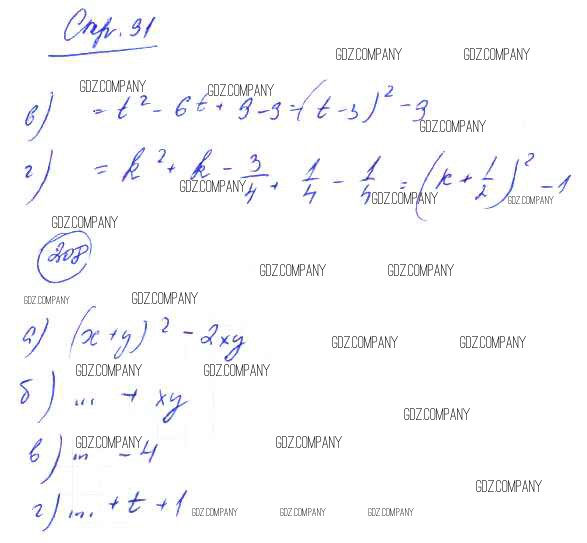 Стр. 91
GDZ.COMPANY GDZ.COMPANY
GDZ.COMPANY GDZ.COMPANY
в) = t² - 6t + 9 - 9 = (t - 3)² - 9
GDZ.COMPANY
г) = k² + k - 3/4 + 1/4 - 1/4 = (k + 1/2)² - 1
GDZ.COMPANY GDZ.COMPANY GDZ.COMPANY
GDZ.COMPANY
208
GDZ.COMPANY GDZ.COMPANY
GDZ.COMPANY GDZ.COMPANY
а) (x + y)² - 2xy
GDZ.COMPANY GDZ.COMPANY
GDZ.COMPANY GDZ.COMPANY
б) ... + xy
GDZ.COMPANY
в) ... - 4
GDZ.COMPANY GDZ.COMPANY
GDZ.COMPANY
г) ... + t + 1
GDZ.COMPANY GDZ.COMPANY GDZ.COMPANY